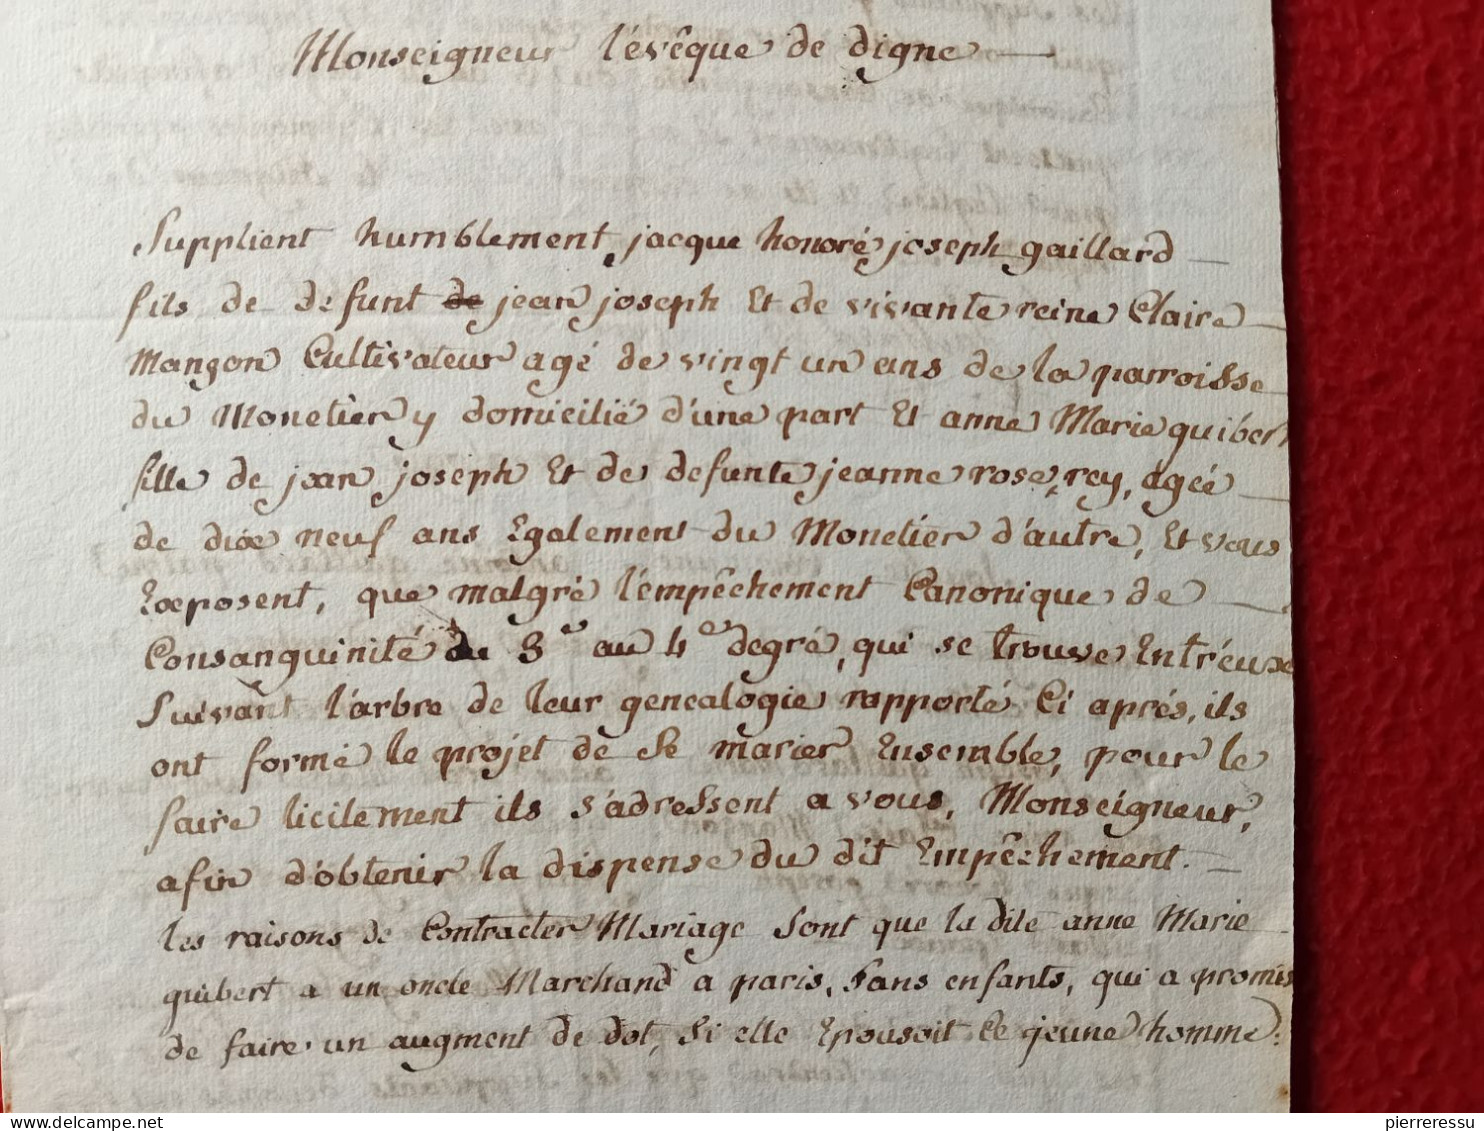 Monseigneur l'évêque de digne
Supplient humblement jacque honoré joseph gaillard
fils de defunt de jean joseph Et de vivante reine Claire
Mangon Cultivateur agé de vingt un ans de la parroisse
du Monetier y domicilié d'une part Et anne Marie guibert
fille de jean joseph Et de defunte jeanne rose rey, agée
de dix neuf ans Egalement du Monetier d'autre, Et vous
Exposent, que malgré l'empêchement Canonique de
Consanguinité du 3e au 4e degré, qui se trouve Entr'eux
Suivant l'arbre de leur genealogie rapporté Ci après, ils
ont formé le projet de Se marier Ensemble, pour le
faire licitement ils s'adressent a vous, Monseigneur,
afin d'obtenir la dispense du dit Empêchement.
les raisons de Contracter Mariage Sont que la dite anne Marie
guibert a un oncle Marchand a paris, Sans enfants, qui a promis
de faire un augment de dot, Si elle Epousoit Ce jeune homme:
delcampe.net
pierreressu